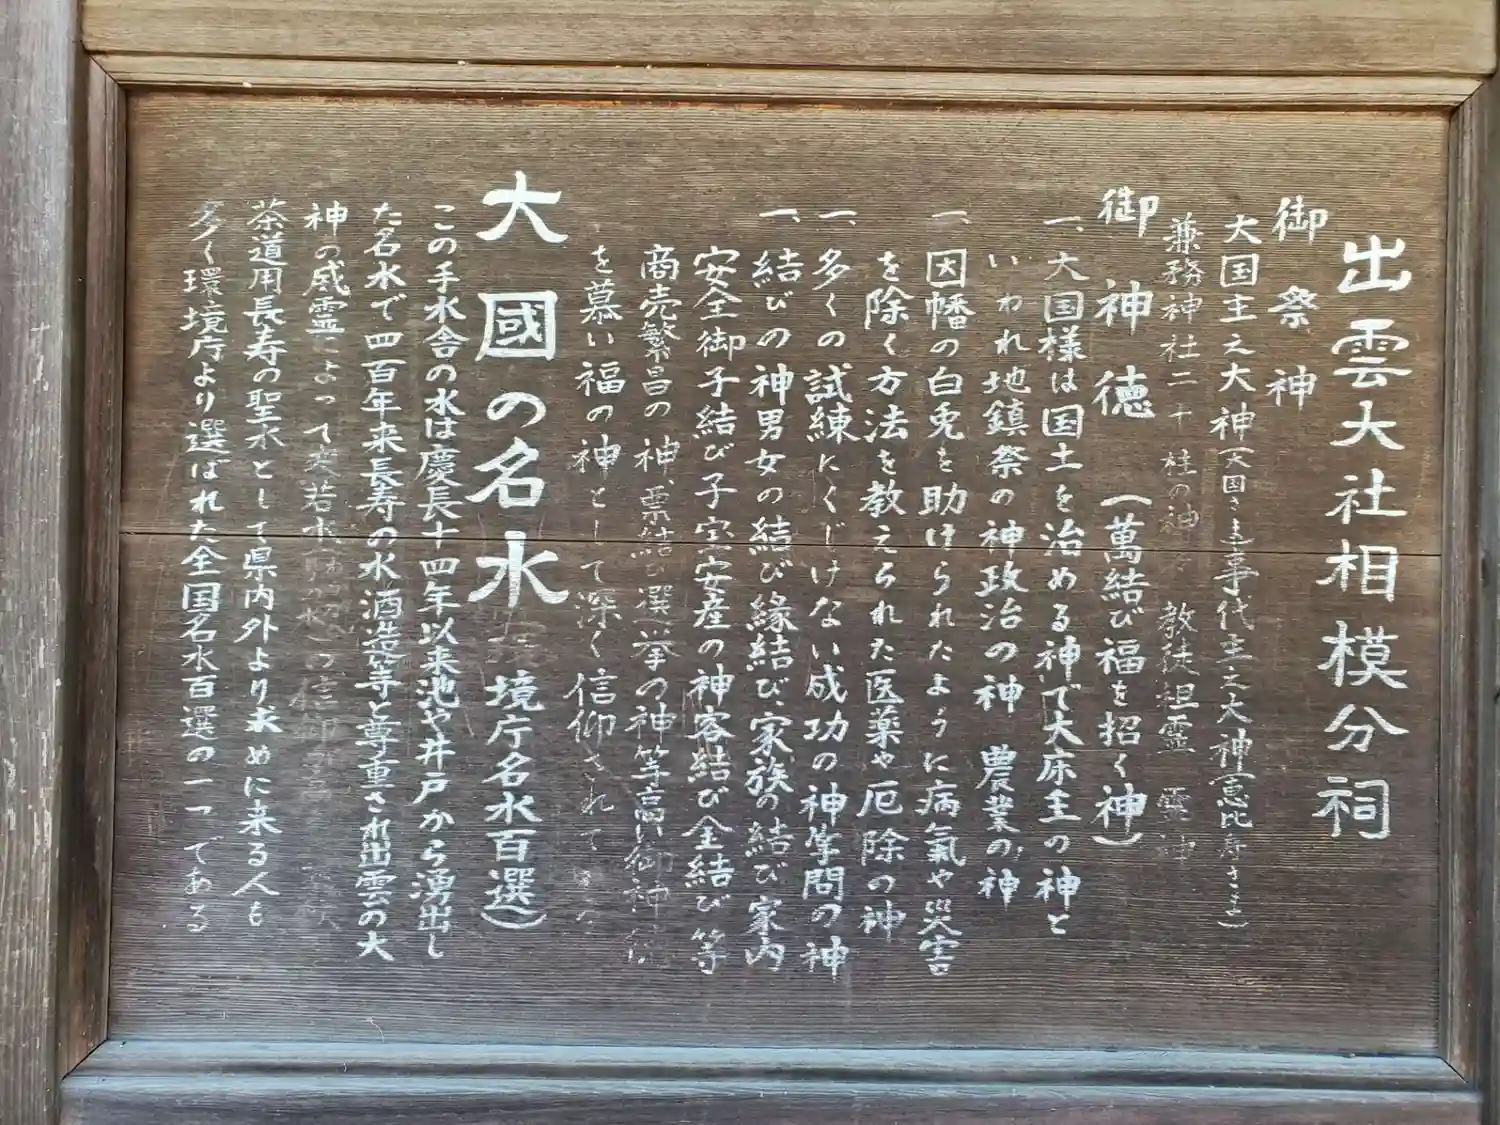 出雲大社相模分祠
御祭神
大国主之大神(大国さま)事代主之大神(恵比寿さま)
兼務神社二十柱の神 教徒祖霊 霊神
御神徳 (萬結び福を招く神)
一、大国様は国土を治める神で大床主の神と
いわれ地鎮祭の神政治の神 農業の神
一、因幡の白兎を助けられたように病氣や災害
を除く方法を教えられた医薬や厄除の神
一、多くの試練にくじけない成功の神学問の神
一、結びの神男女の結び縁結び、家族の結び家内
安全御子結び子宝安産の神客結び全結び等
商売繁昌の神、票結び選挙の神等高い御神徳
を慕い福の神として深く信仰されて
大國の名水 境庁名水百選)
この手水舎の水は慶長十四年以来池や井戸から湧出し
た名水で四百年来長寿の水酒造等と尊重され出雲の大
神の威霊によって 若水 の信仰
茶道用長寿の聖水として県内外より求めに来る人も
多く環境庁より選ばれた全国名水百選の一つである